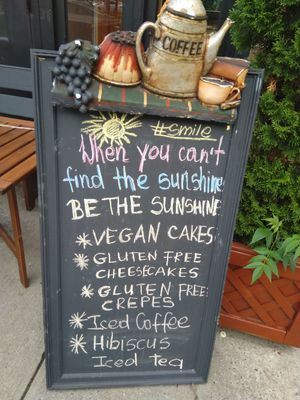 COFFEE
#smile
When you can't
find the sunshine
BE THE SUNSHINE
* VEGAN CAKES
* GLUTEN FREE
CHEESECAKES
* GLUTEN FREE
CREPES
* Iced Coffee
* Hibiscus
Iced tea